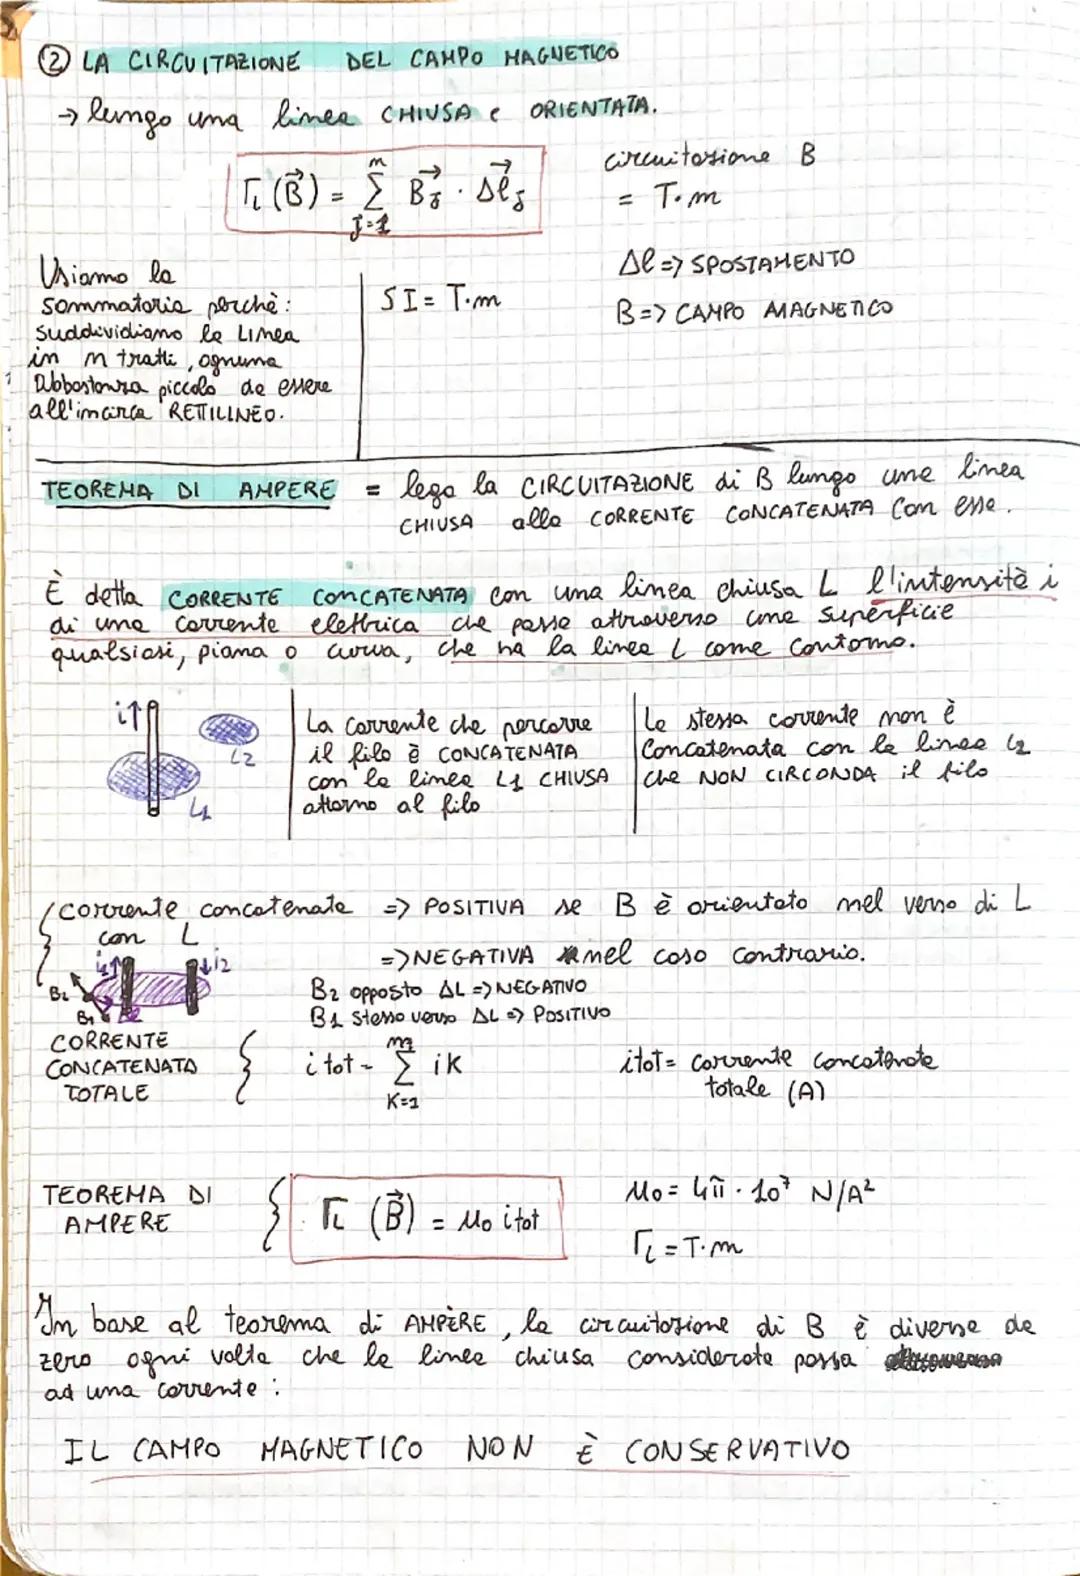 ② LA CIRCUITAZIONE DEL CAMPO MAGNETICO
→ lungo una linea CHIUSA e ORIENTATA.
Γ_L (B⃗) = Σ_{j=1}^{m} B⃗_j · Δl⃗_j
circuitazione B
= T·m
Δl => SPOSTAMENTO
B => CAMPO MAGNETICO
Usiamo la
sommatoria perchè:
suddividiamo la LINEA
in n tratti, ognuna
abbastanza piccolo da essere
all'incirca RETTILINEO.
SI = T·m
TEOREMA DI AMPERE = lega la CIRCUITAZIONE di B lungo una linea
CHIUSA alla CORRENTE CONCATENATA con essa.
È detta CORRENTE CONCATENATA con una linea chiusa L l'intensità i
di una corrente elettrica che passa attraverso una superficie
qualsiasi, piana o curva, che ha la linea L come contorno.
i↑
L2
L1
La corrente che percorre
il filo è CONCATENATA
con la linea L1 CHIUSA
attorno al filo
La stessa corrente non è
concatenata con la linea L2
che NON CIRCONDA il filo
corrente concatenata => POSITIVA se B è orientato nel verso di L
con L
=> NEGATIVA nel caso contrario.
i1↑ ↓i2
B2
B1
B2 opposto ΔL => NEGATIVO
B1 stesso verso ΔL => POSITIVO
CORRENTE
CONCATENATA
TOTALE
i tot = Σ_{K=1}^{m} iK
itot = corrente concatenata
totale (A)
TEOREMA DI
AMPERE
Γ_L (B⃗) = μ0 itot
μ0 = 4π · 10⁷ N/A²
Γ_L = T·m
In base al teorema di AMPÈRE, la circuitazione di B è diversa da
zero ogni volta che la linea chiusa considerata passa
ad una corrente :
IL CAMPO MAGNETICO NON È CONSERVATIVO